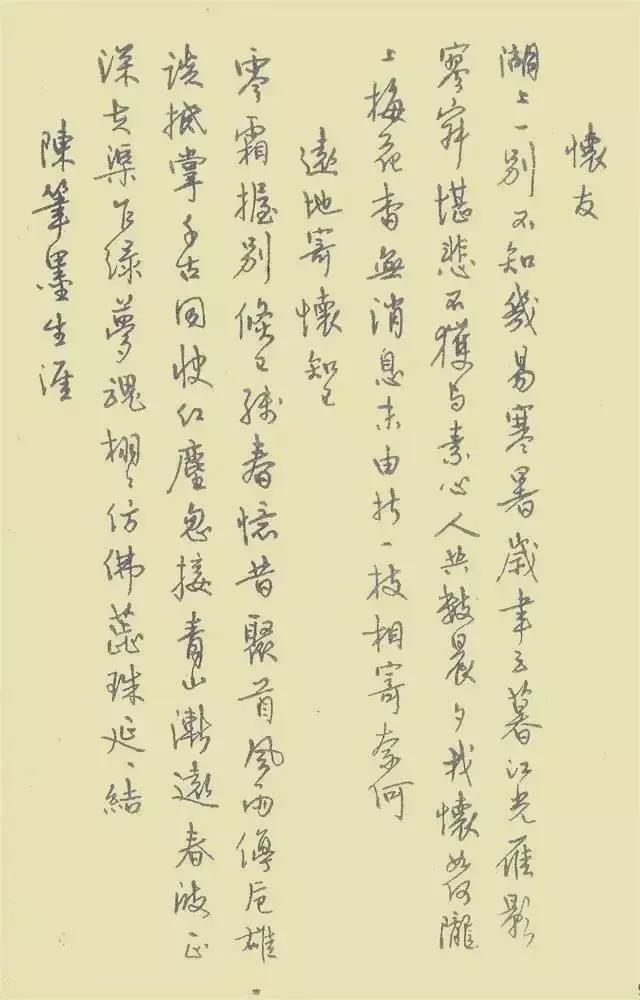 懷友
湖上一別不知幾易寒暑歲聿云暮江光雁影
寥寂堪悲不獲与素心人共數晨夕我懷如何隴
上梅花杳無消息末由折一枝相寄奈何
遠地寄懷知己
零霜握別條已殘春憶昔聚首風雨傳卮雄
談抵掌千古同快紅塵忽接青山漸遠春波正
深古渠乍綠夢魂栩栩仿佛蕊珠延延結
陳筆墨生涯